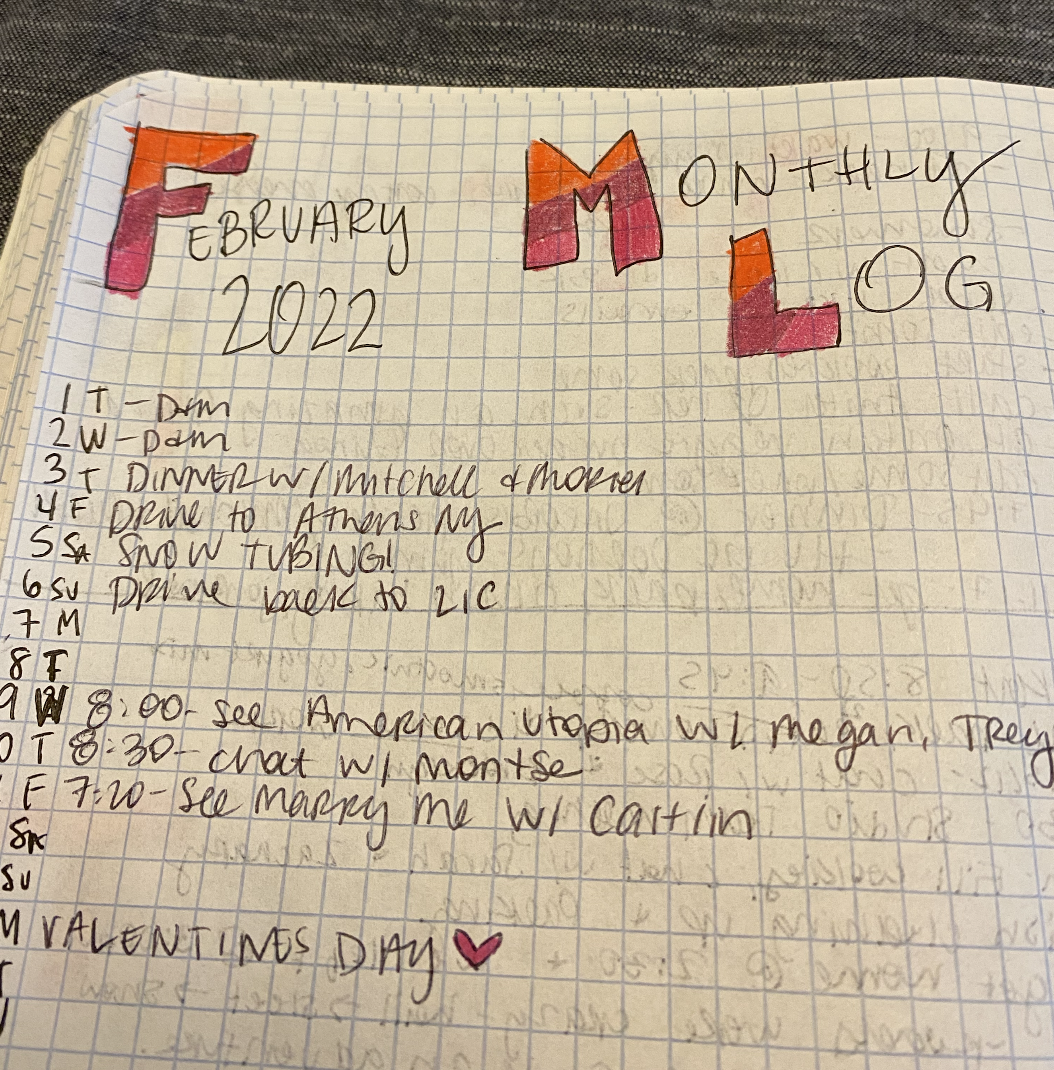 FEBRUARY
2022
MONTHLY
LOG
1 T - Dam
2 W - Dam
3 T DINNER W/ Mitchell &
4 F Drive to Athens NY
5 SA SNOW TUBING!
6 SU Drive back to LIC
7 M
8 T
9 W 8:00 - see American Utopia w/ megan, Trey
0 T 8:30 - chat w/ Montse
F 7:20 - See Marry Me w/ Caitlin
SA
SU
M VALENTINES DAY
T